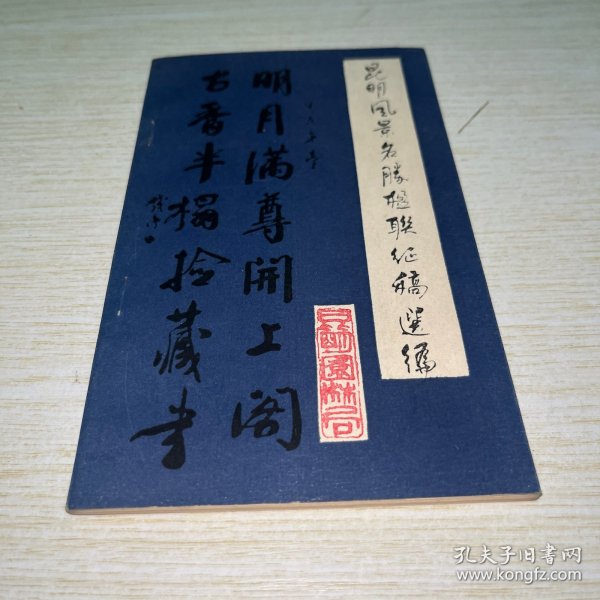 昆明風景名勝楹聯征稿選编
明月满尊開上阁
古香半榻拾藏书
孔夫子旧书网
www.kongfz.com